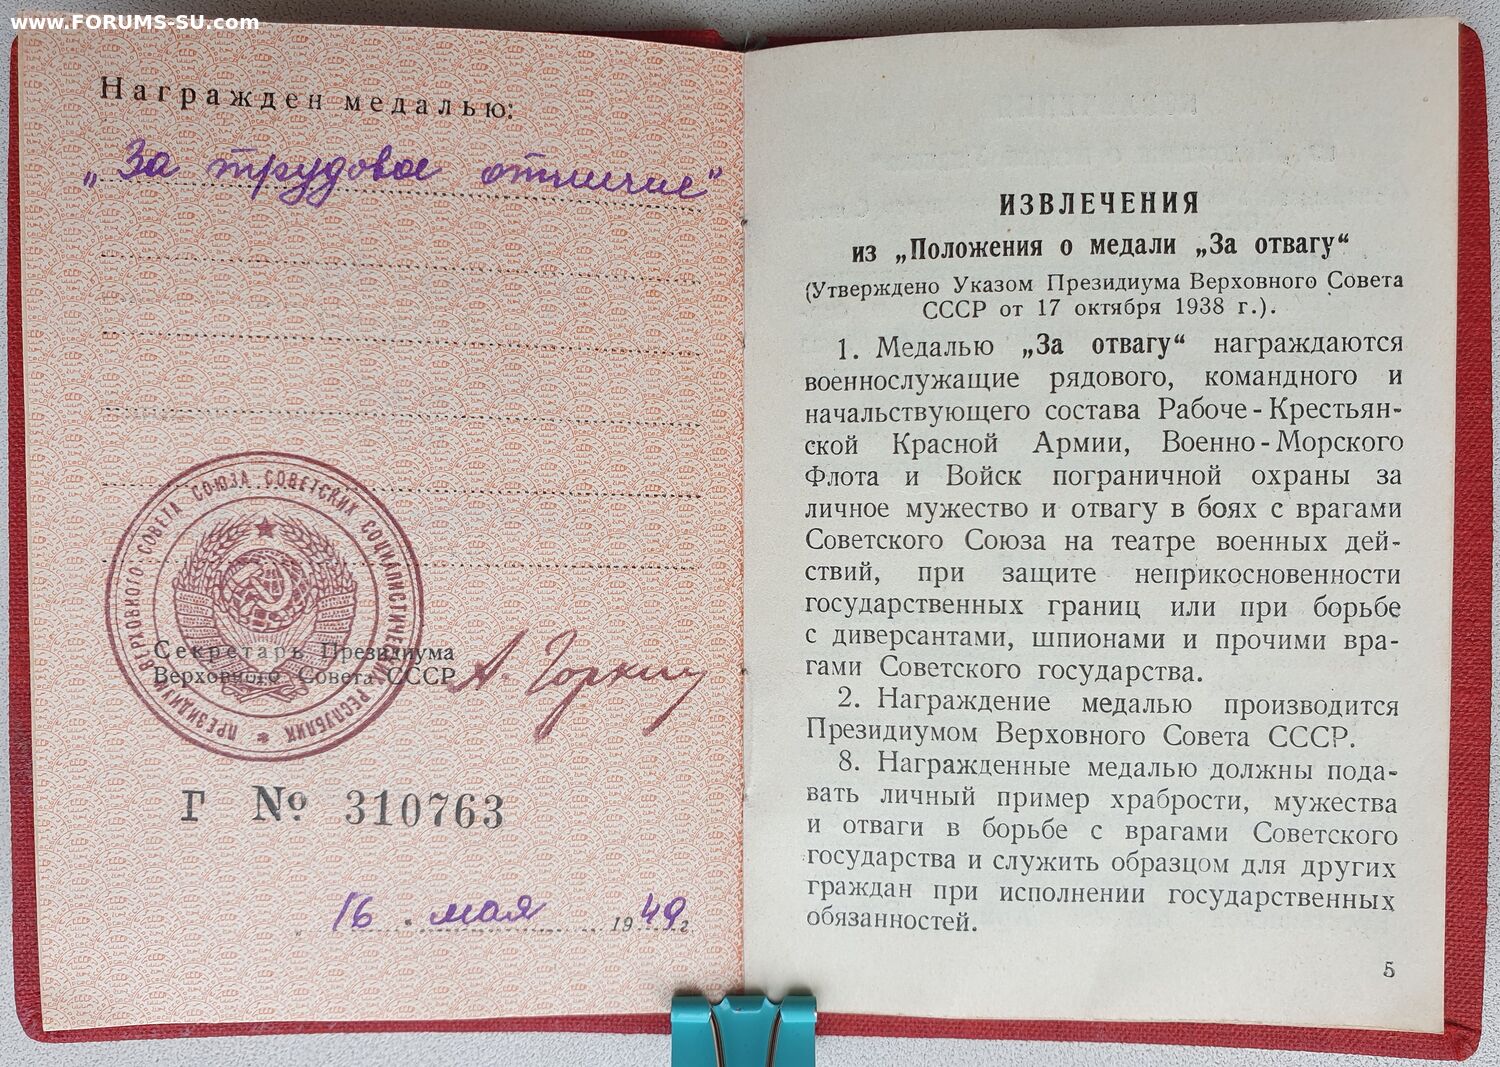 www.FORUMS-SU.com
Награжден медалью:
„За трудовое отличие"
ПРЕЗИДИУМ ВЕРХОВНОГО СОВЕТА СОЮЗА СОВЕТСКИХ СОЦИАЛИСТИЧЕСКИХ РЕСПУБЛИК
Секретарь Президиума
Верховного Совета СССР
А. Горкин
Г № 310763
„ 16 . мая 1949 г.
ИЗВЛЕЧЕНИЯ
из „Положения о медали „За отвагу“
(Утверждено Указом Президиума Верховного Совета
СССР от 17 октября 1938 г.).
1. Медалью „За отвагу“ награждаются
военнослужащие рядового, командного и
начальствующего состава Рабоче-Крестьян-
ской Красной Армии, Военно-Морского
Флота и Войск пограничной охраны за
личное мужество и отвагу в боях с врагами
Советского Союза на театре военных дей-
ствий, при защите неприкосновенности
государственных границ или при борьбе
с диверсантами, шпионами и прочими вра-
гами Советского государства.
2. Награждение медалью производится
Президиумом Верховного Совета СССР.
8. Награжденные медалью должны пода-
вать личный пример храбрости, мужества
и отваги в борьбе с врагами Советского
государства и служить образцом для других
граждан при исполнении государственных
обязанностей.
5